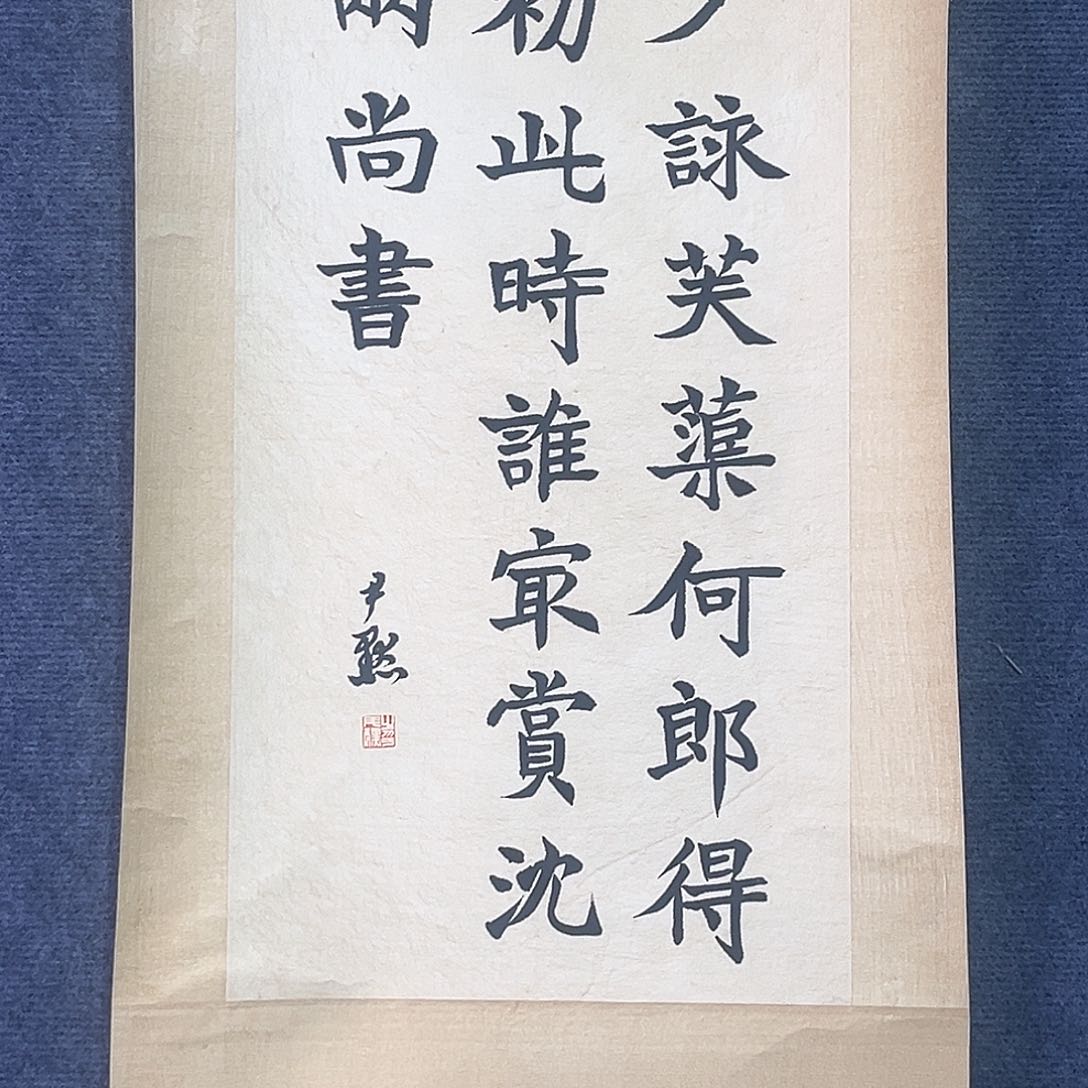 詠芙蕖何郎得
初此時誰㝡賞沈
兩尚書
尹默